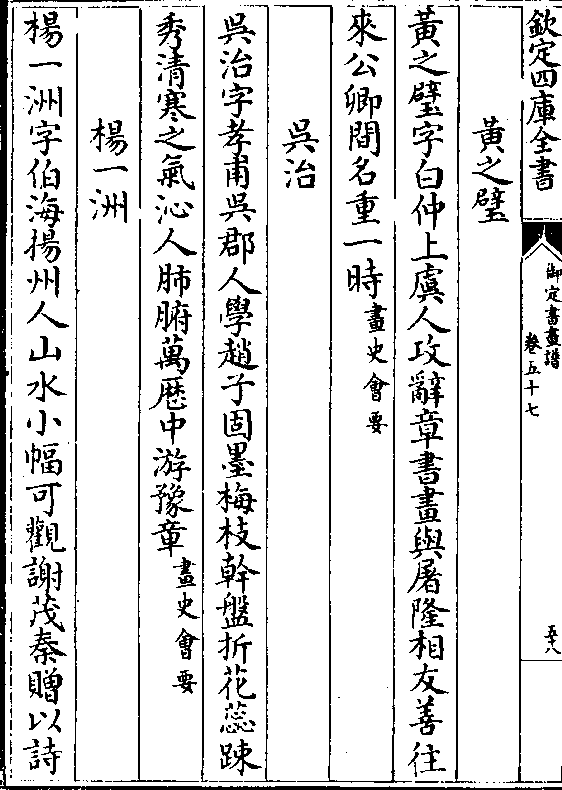 欽定四庫全書
御定書畫譜
卷五十七
五十八
黃之璧
黃之璧字白仲上虞人攻辭章書畫與屠隆相友善往
來公卿間名重一時畫史會要
吳治
吳治字孝甫吳郡人學趙子固墨梅枝幹盤折花蕊踈
秀清寒之氣沁人肺腑萬歷中游豫章畫史會要
楊一洲
楊一洲字伯海揚州人山水小幅可觀謝茂秦贈以詩